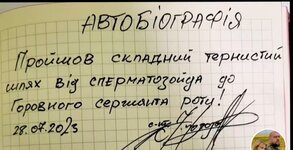 АВТОБІОГРАФІЯ
Пройшов складний тернистий
шлях від сперматозоїда до
Головного сержанта роти!
28.07.2023